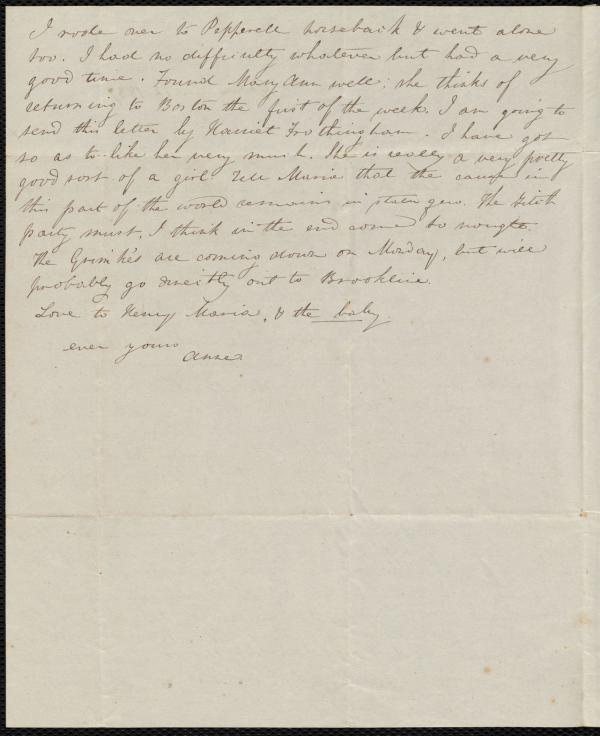 I rode over to Pepperell horseback & went alone
too. I had no difficulty whatever but had a very
good time. Found Mary Ann well; she thinks of
returning to Boston the first of the week. I am going to
send this letter by Harriet Frothingham. I have got
so as to like her very much. She is really a very pretty
good sort of a girl. Tell Maria that the cause in
this part of the world remains in statu quo. The Fitch
party must, I think in the end come to nought.
The Grimkés are coming down on Monday, but will
probably go directly out to Brookline.
Love to Henry Maria, & the baby.
ever yours
Anne